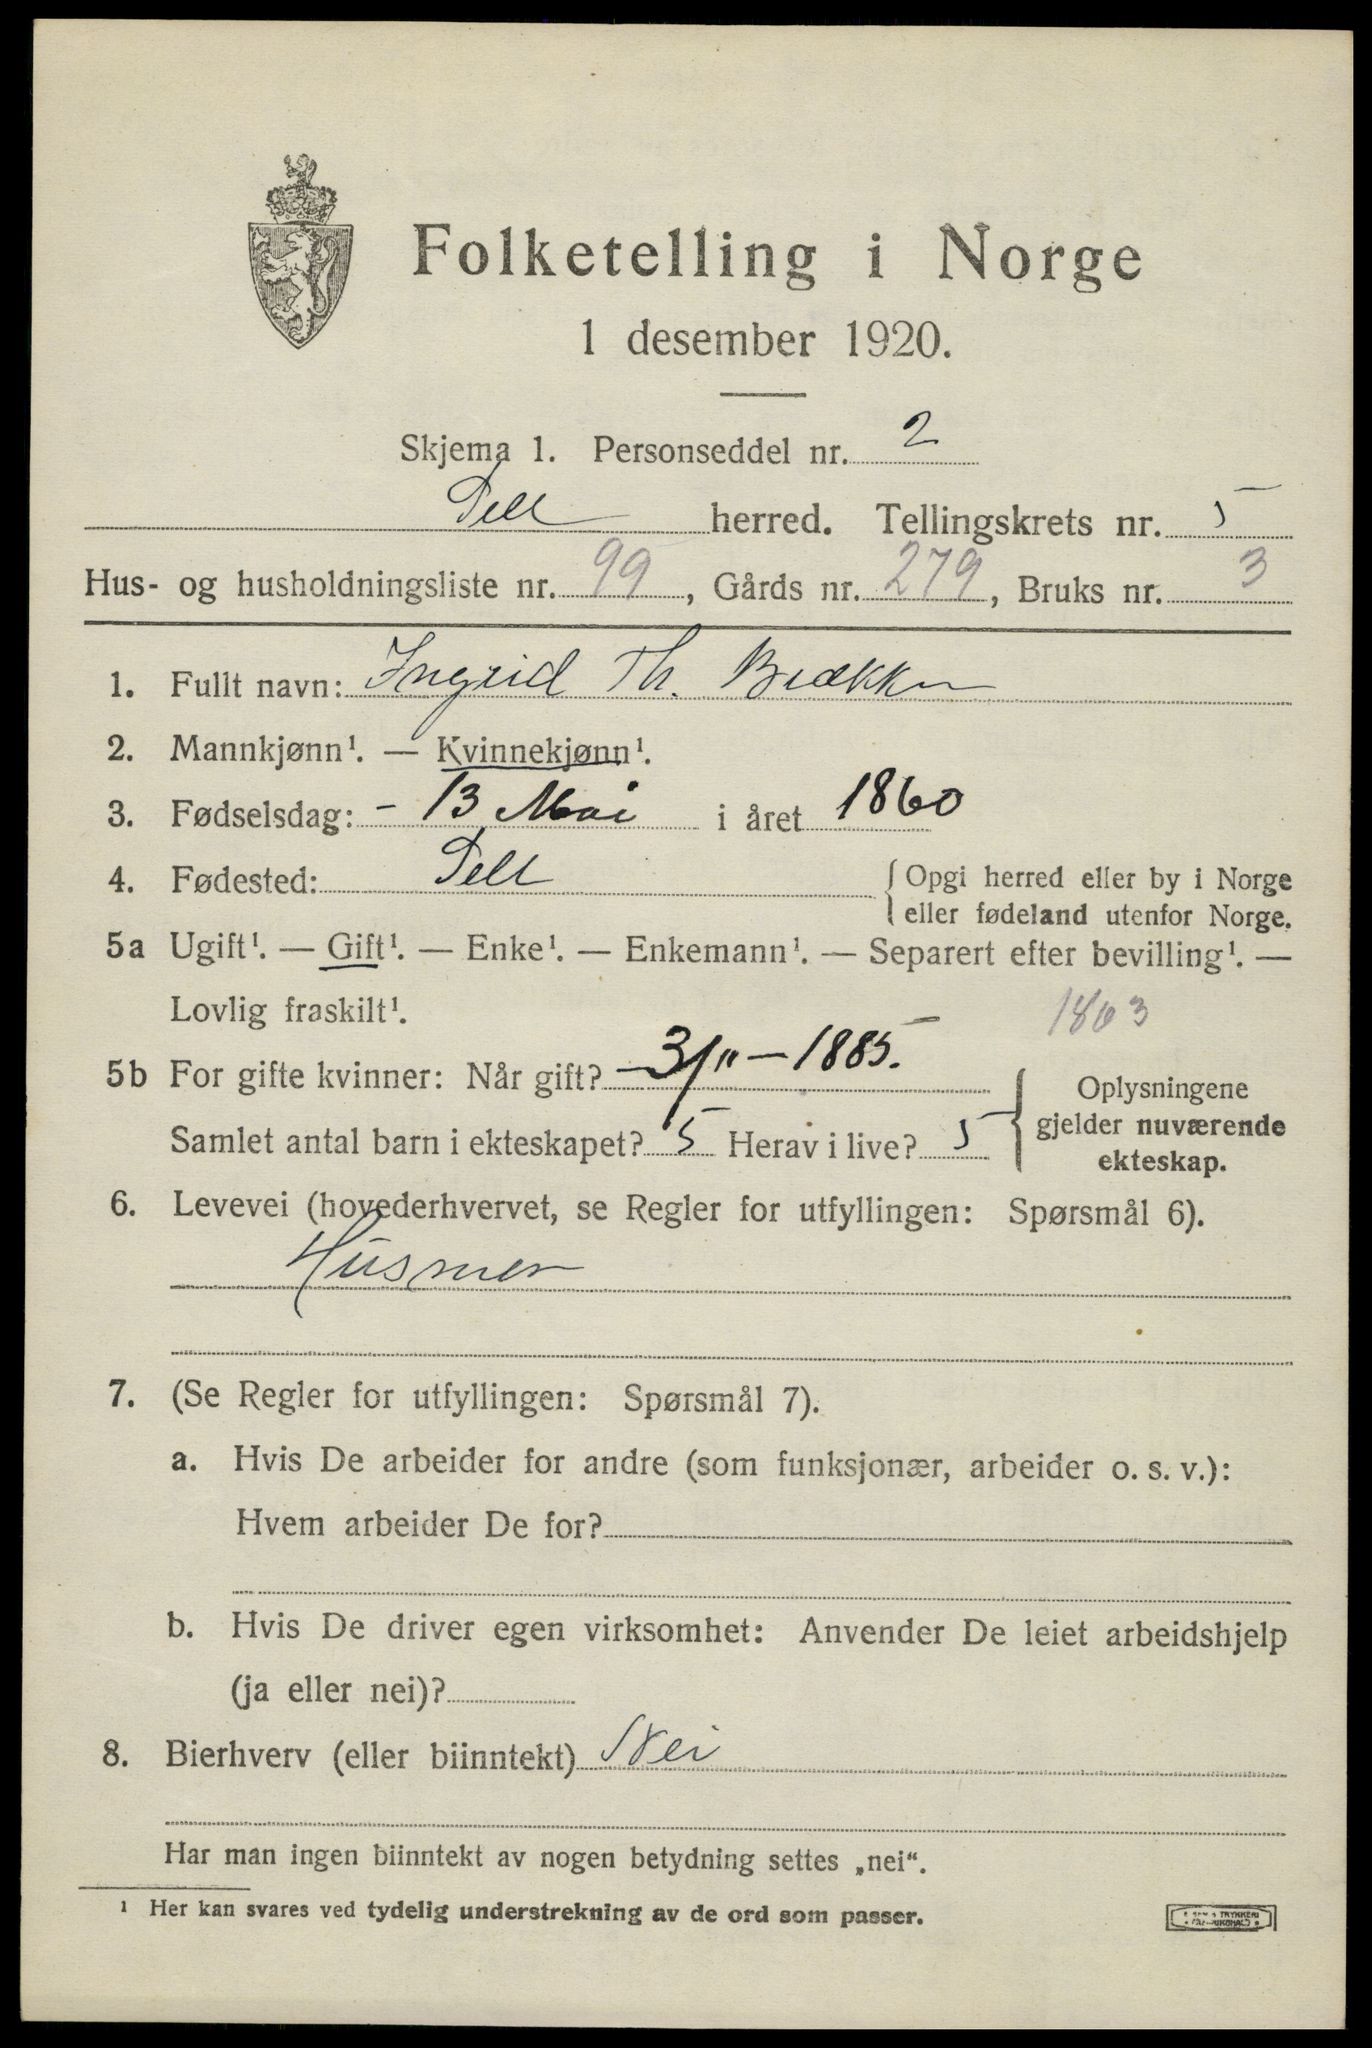 Folketelling i Norge
1 desember 1920.
Skjema 1. Personseddel nr. 2
herred. Tellingskrets nr. 5
Hus- og husholdningsliste nr. 99, Gårds nr. 279, Bruks nr. 3
1. Fullt navn: Ingrid Th. Brækken
2. Mannkjønn¹. — Kvinnekjønn¹.
3. Fødselsdag: - 13 Mai i året 1860
4. Fødested: { Opgi herred eller by i Norge
eller fødeland utenfor Norge.
5a Ugift¹. — Gift¹. — Enke¹. — Enkemann¹. — Separert efter bevilling¹. —
Lovlig fraskilt¹.
1863
5b For gifte kvinner: Når gift? 3/11 - 1885. { Oplysningene
gjelder nuværende
Samlet antal barn i ekteskapet? 5 Herav i live? 5
ekteskap.
6. Levevei (hovederhvervet, se Regler for utfyllingen: Spørsmål 6).
Husmor
7. (Se Regler for utfyllingen: Spørsmål 7).
a. Hvis De arbeider for andre (som funksjonær, arbeider o. s. v.):
Hvem arbeider De for?
b. Hvis De driver egen virksomhet: Anvender De leiet arbeidshjelp
(ja eller nei)?
8. Bierhverv (eller biinntekt) Nei
Har man ingen biinntekt av nogen betydning settes „nei“.
¹ Her kan svares ved tydelig understrekning av de ord som passer.